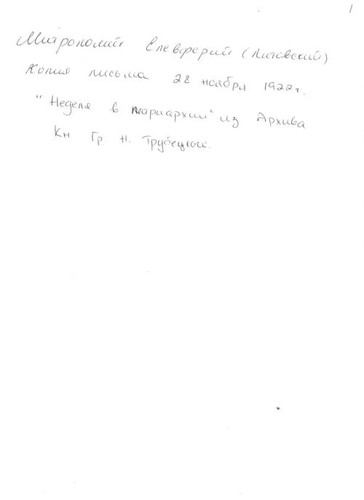 1
Митрополит Елевферий (Литовский)
Копия письма 28 ноября 1922 г.
"Неделя в патриархии" из Архива
Кн Гр. Н. Трубецкого.